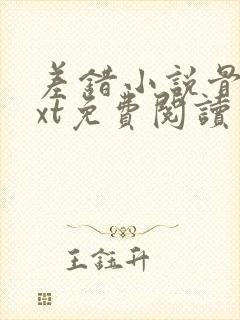 差錯小說骨
xt免費閱讀
王鈺升